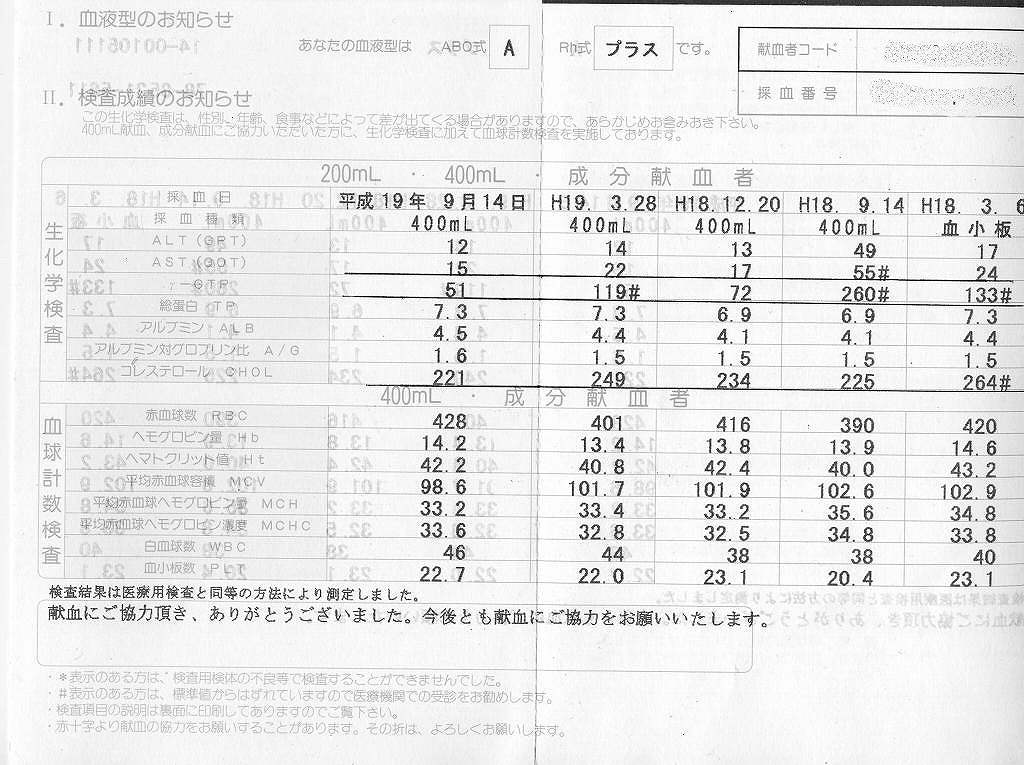 I. 血液型のお知らせ
あなたの血液型は ABO式 A Rh式 プラス です。
献血者コード
採血番号
II. 検査成績のお知らせ
この生化学検査は、性別、年齢、食事などによって差が出てくる場合がありますので、あらかじめお含みおき下さい。
400mL献血、成分献血にご協力いただいた方に、生化学検査に加えて血球計数検査を実施しております。
200mL ・ 400mL ・ 成分献血者
採血日 平成19年 9月14日 H19. 3.28 H18.12.20 H18. 9.14 H18. 3. 6
採血種類 400mL 400mL 400mL 400mL 血小板
生化学検査
ALT(GPT) 12 14 13 49 17
AST(GOT) 15 22 17 55# 24
γ-GTP 51 119# 72 260# 133#
総蛋白 TP 7.3 7.3 6.9 6.9 7.3
アルブミン ALB 4.5 4.4 4.1 4.1 4.4
アルブミン対グロブリン比 A/G 1.6 1.5 1.5 1.5 1.5
コレステロール CHOL 221 249 234 225 264#
400mL ・ 成分献血者
血球計数検査
赤血球数 RBC 428 401 416 390 420
ヘモグロビン量 Hb 14.2 13.4 13.8 13.9 14.6
ヘマトクリット値 Ht 42.2 40.8 42.4 40.0 43.2
平均赤血球容積 MCV 98.6 101.7 101.9 102.6 102.9
平均赤血球ヘモグロビン量 MCH 33.2 33.4 33.2 35.6 34.8
平均赤血球ヘモグロビン濃度 MCHC 33.6 32.8 32.5 34.8 33.8
白血球数 WBC 46 44 38 38 40
血小板数 PLT 22.7 22.0 23.1 20.4 23.1
検査結果は医療用検査と同等の方法により測定しました。
献血にご協力頂き、ありがとうございました。今後とも献血にご協力をお願いいたします。
・*表示のある方は、検査用検体の不良等で検査することができませんでした。
・#表示のある方は、標準値からはずれていますので医療機関での受診をお勧めします。
・検査項目の説明は裏面に印刷してありますのでご覧下さい。
・赤十字より献血の協力をお願いすることがあります。その折は、よろしくお願いします。